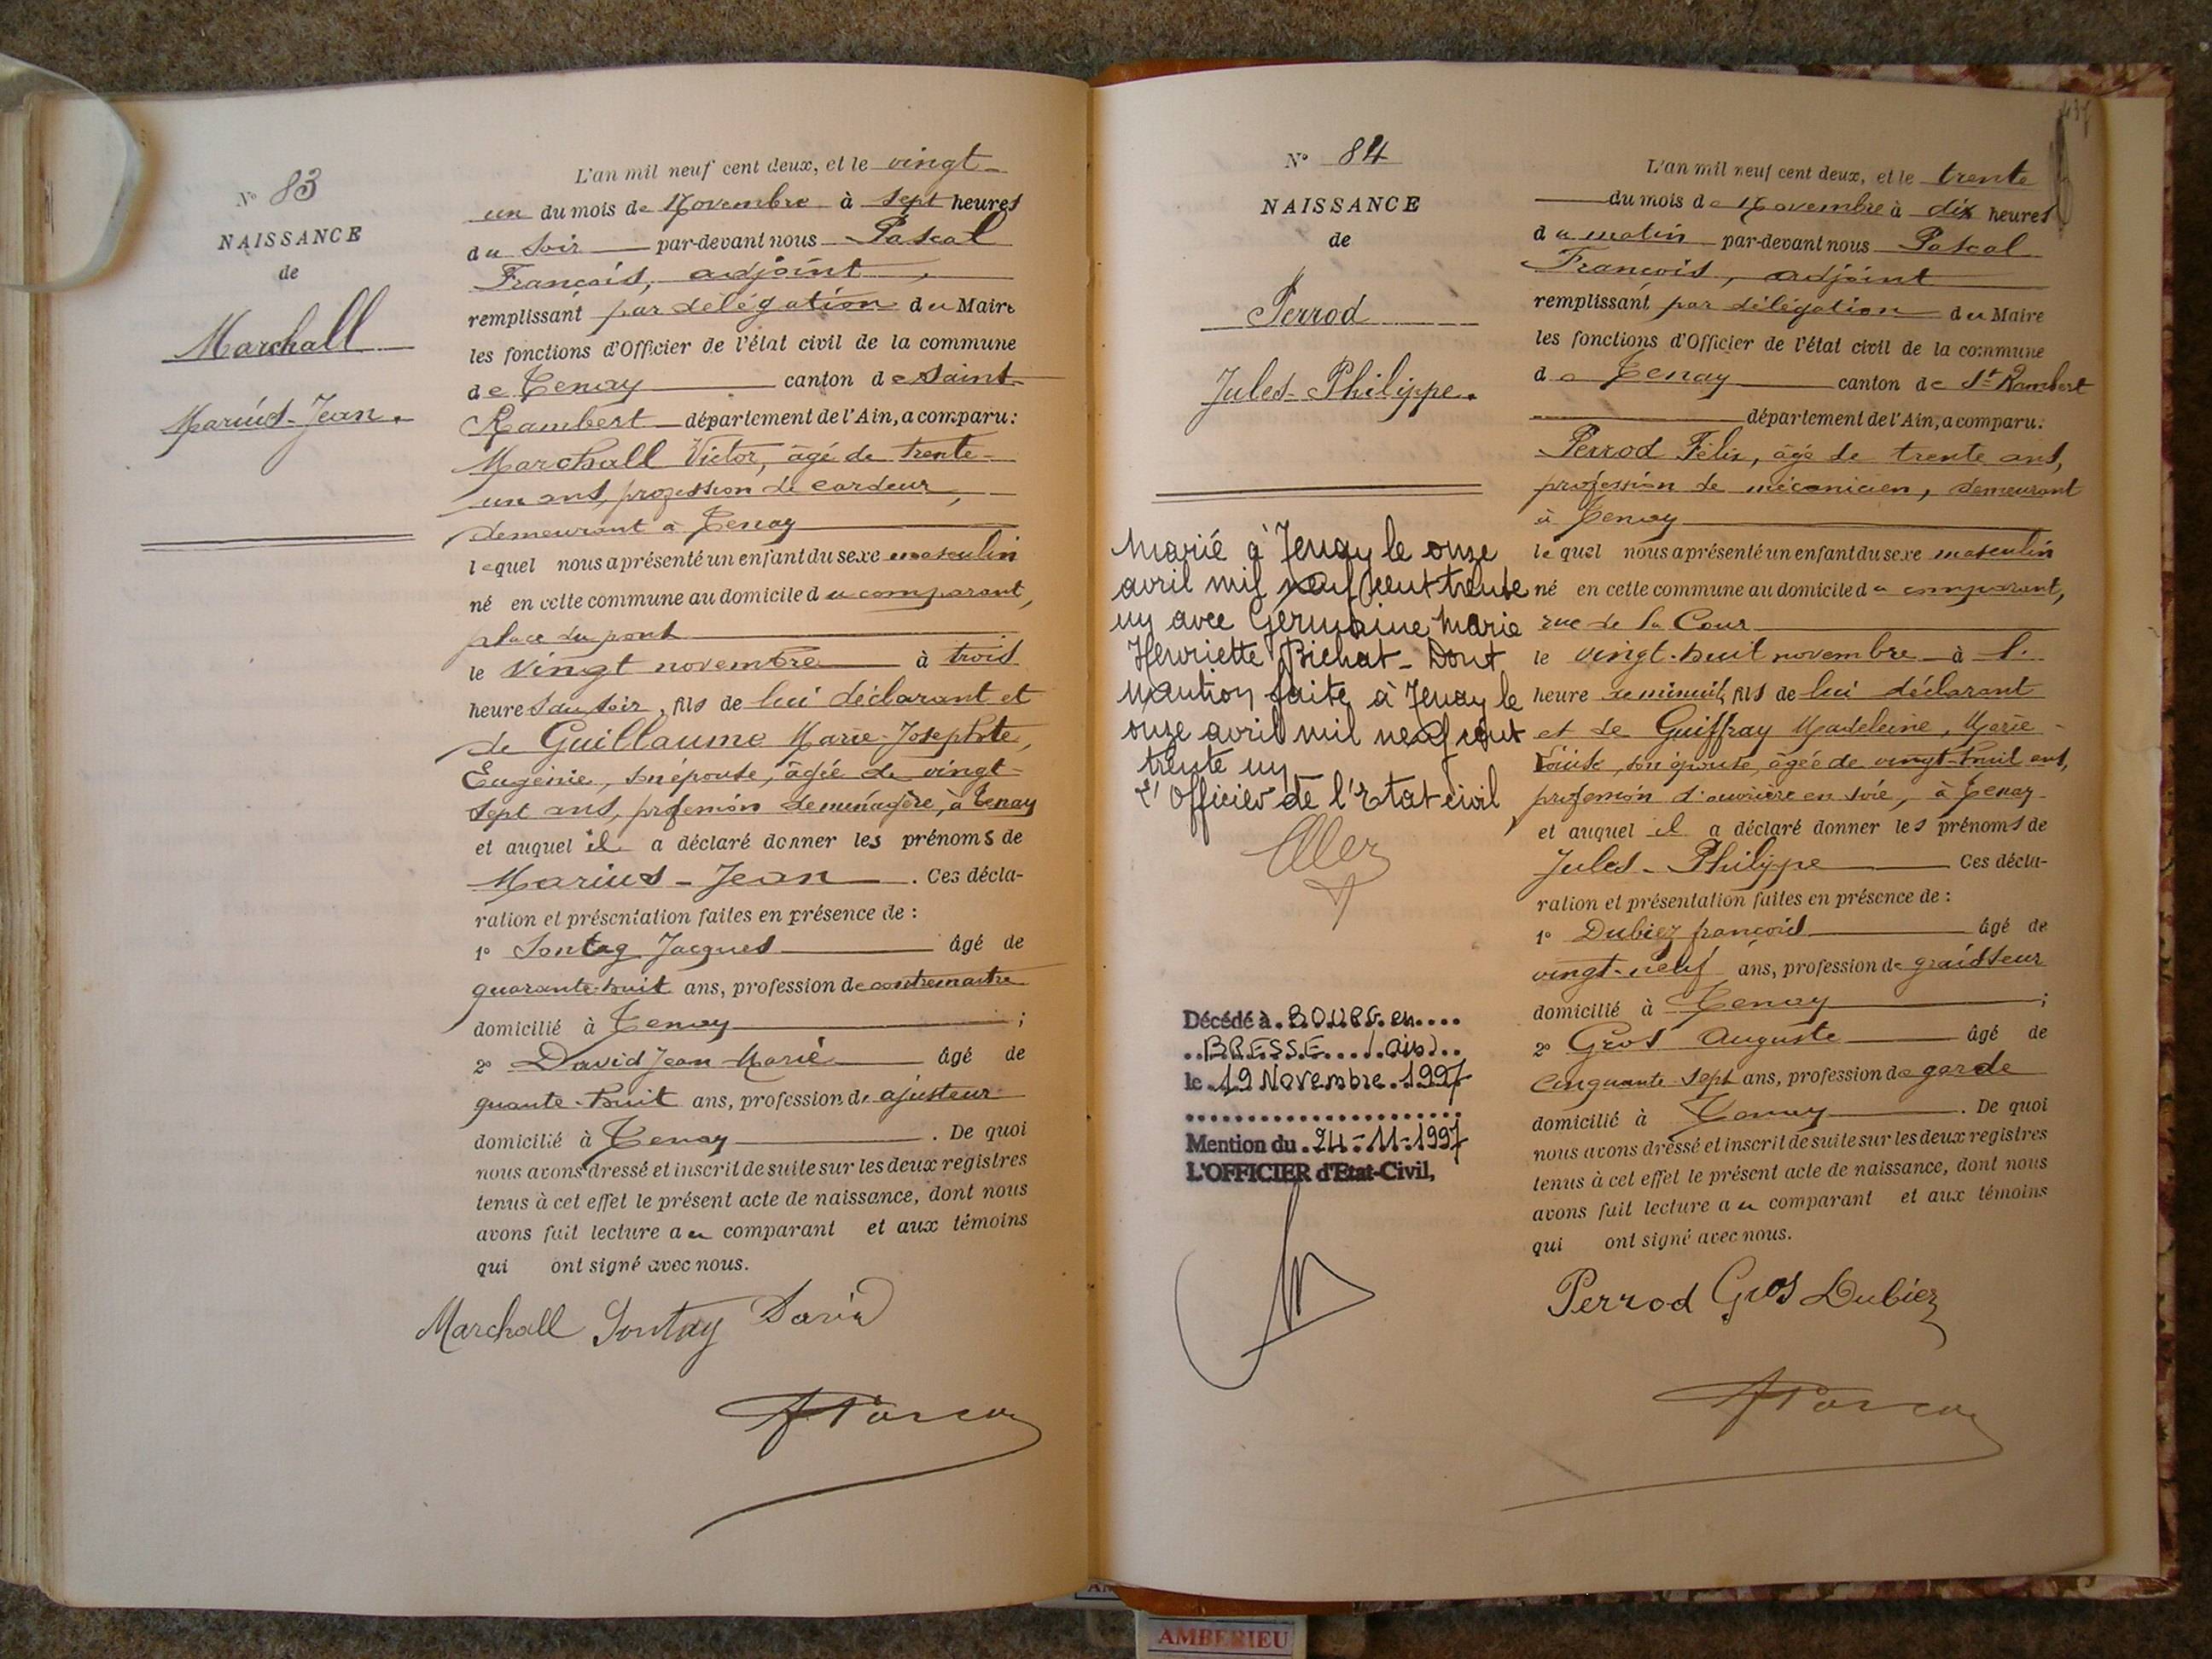 N° 83
NAISSANCE
de
Marchall
Marius-Jean.
L'an mil neuf cent deux, et le vingt-
un du mois de Novembre à sept heures
du soir par-devant nous Pascal
François, adjoint,
remplissant par délégation du Maire
les fonctions d'Officier de l'état civil de la commune
de Tenay canton de Saint-
Rambert département de l'Ain, a comparu:
Marchall Victor, âgé de trente-
un ans, profession de cardeur,
demeurant à Tenay
lequel nous a présenté un enfant du sexe masculin
né en cette commune au domicile du comparant,
place du pont
le vingt novembre à trois
heures du soir, fils de lui déclarant et
de Guillaume Marie-Josephte,
Eugénie, son épouse, âgée de vingt-
sept ans, profession de ménagère, à Tenay
et auquel il a déclaré donner les prénoms de
Marius-Jean. Ces décla-
ration et présentation faites en présence de :
1° Sontag Jacques âgé de
quarante-huit ans, profession de contremaitre
domicilié à Tenay ;
2° David Jean Marie âgé de
quante-huit ans, profession d'ajusteur
domicilié à Tenay. De quoi
nous avons dressé et inscrit de suite sur les deux registres
tenus à cet effet le présent acte de naissance, dont nous
avons fait lecture au comparant et aux témoins
qui ont signé avec nous.
Marchall Sontag David
N° 84
NAISSANCE
de
Perrod
Jules-Philippe.
Marié à Tenay le onze
avril mil neuf cent trente
un avec Germaine Marie
Henriette Bichat - Dont
mention faite à Tenay le
onze avril mil neuf cent
trente un
L'Officier de l'Etat civil
Décédé à BOURG en
BRESSE (ain)
le 19 Novembre 1997
Mention du 24-11-1997
L'OFFICIER d'Etat-Civil,
437
L'an mil neuf cent deux, et le trente
du mois de Novembre à dix heures
du matin par-devant nous Pascal
François, adjoint
remplissant par délégation du Maire
les fonctions d'Officier de l'état civil de la commune
de Tenay canton de St Rambert
département de l'Ain, a comparu:
Perrod Félix, âgé de trente ans,
profession de mécanicien, demeurant
à Tenay
lequel nous a présenté un enfant du sexe masculin
né en cette commune au domicile du comparant,
rue de la Cour
le vingt-huit novembre à l'
heure de minuit, fils de lui déclarant
et de Guiffray Madeleine, Marie
Louise, son épouse, âgée de vingt-huit ans,
profession d'ouvrière en soie, à Tenay
et auquel il a déclaré donner les prénoms de
Jules-Philippe Ces décla-
ration et présentation faites en présence de :
1° Dubiez françois âgé de
vingt-neuf ans, profession de graisseur
domicilié à Tenay ;
2° Gros Auguste âgé de
Cinquante-sept ans, profession de garde
domicilié à Tenay. De quoi
nous avons dressé et inscrit de suite sur les deux registres
tenus à cet effet le présent acte de naissance, dont nous
avons fait lecture au comparant et aux témoins
qui ont signé avec nous.
Perrod Gros Dubiez
AMBERIEU